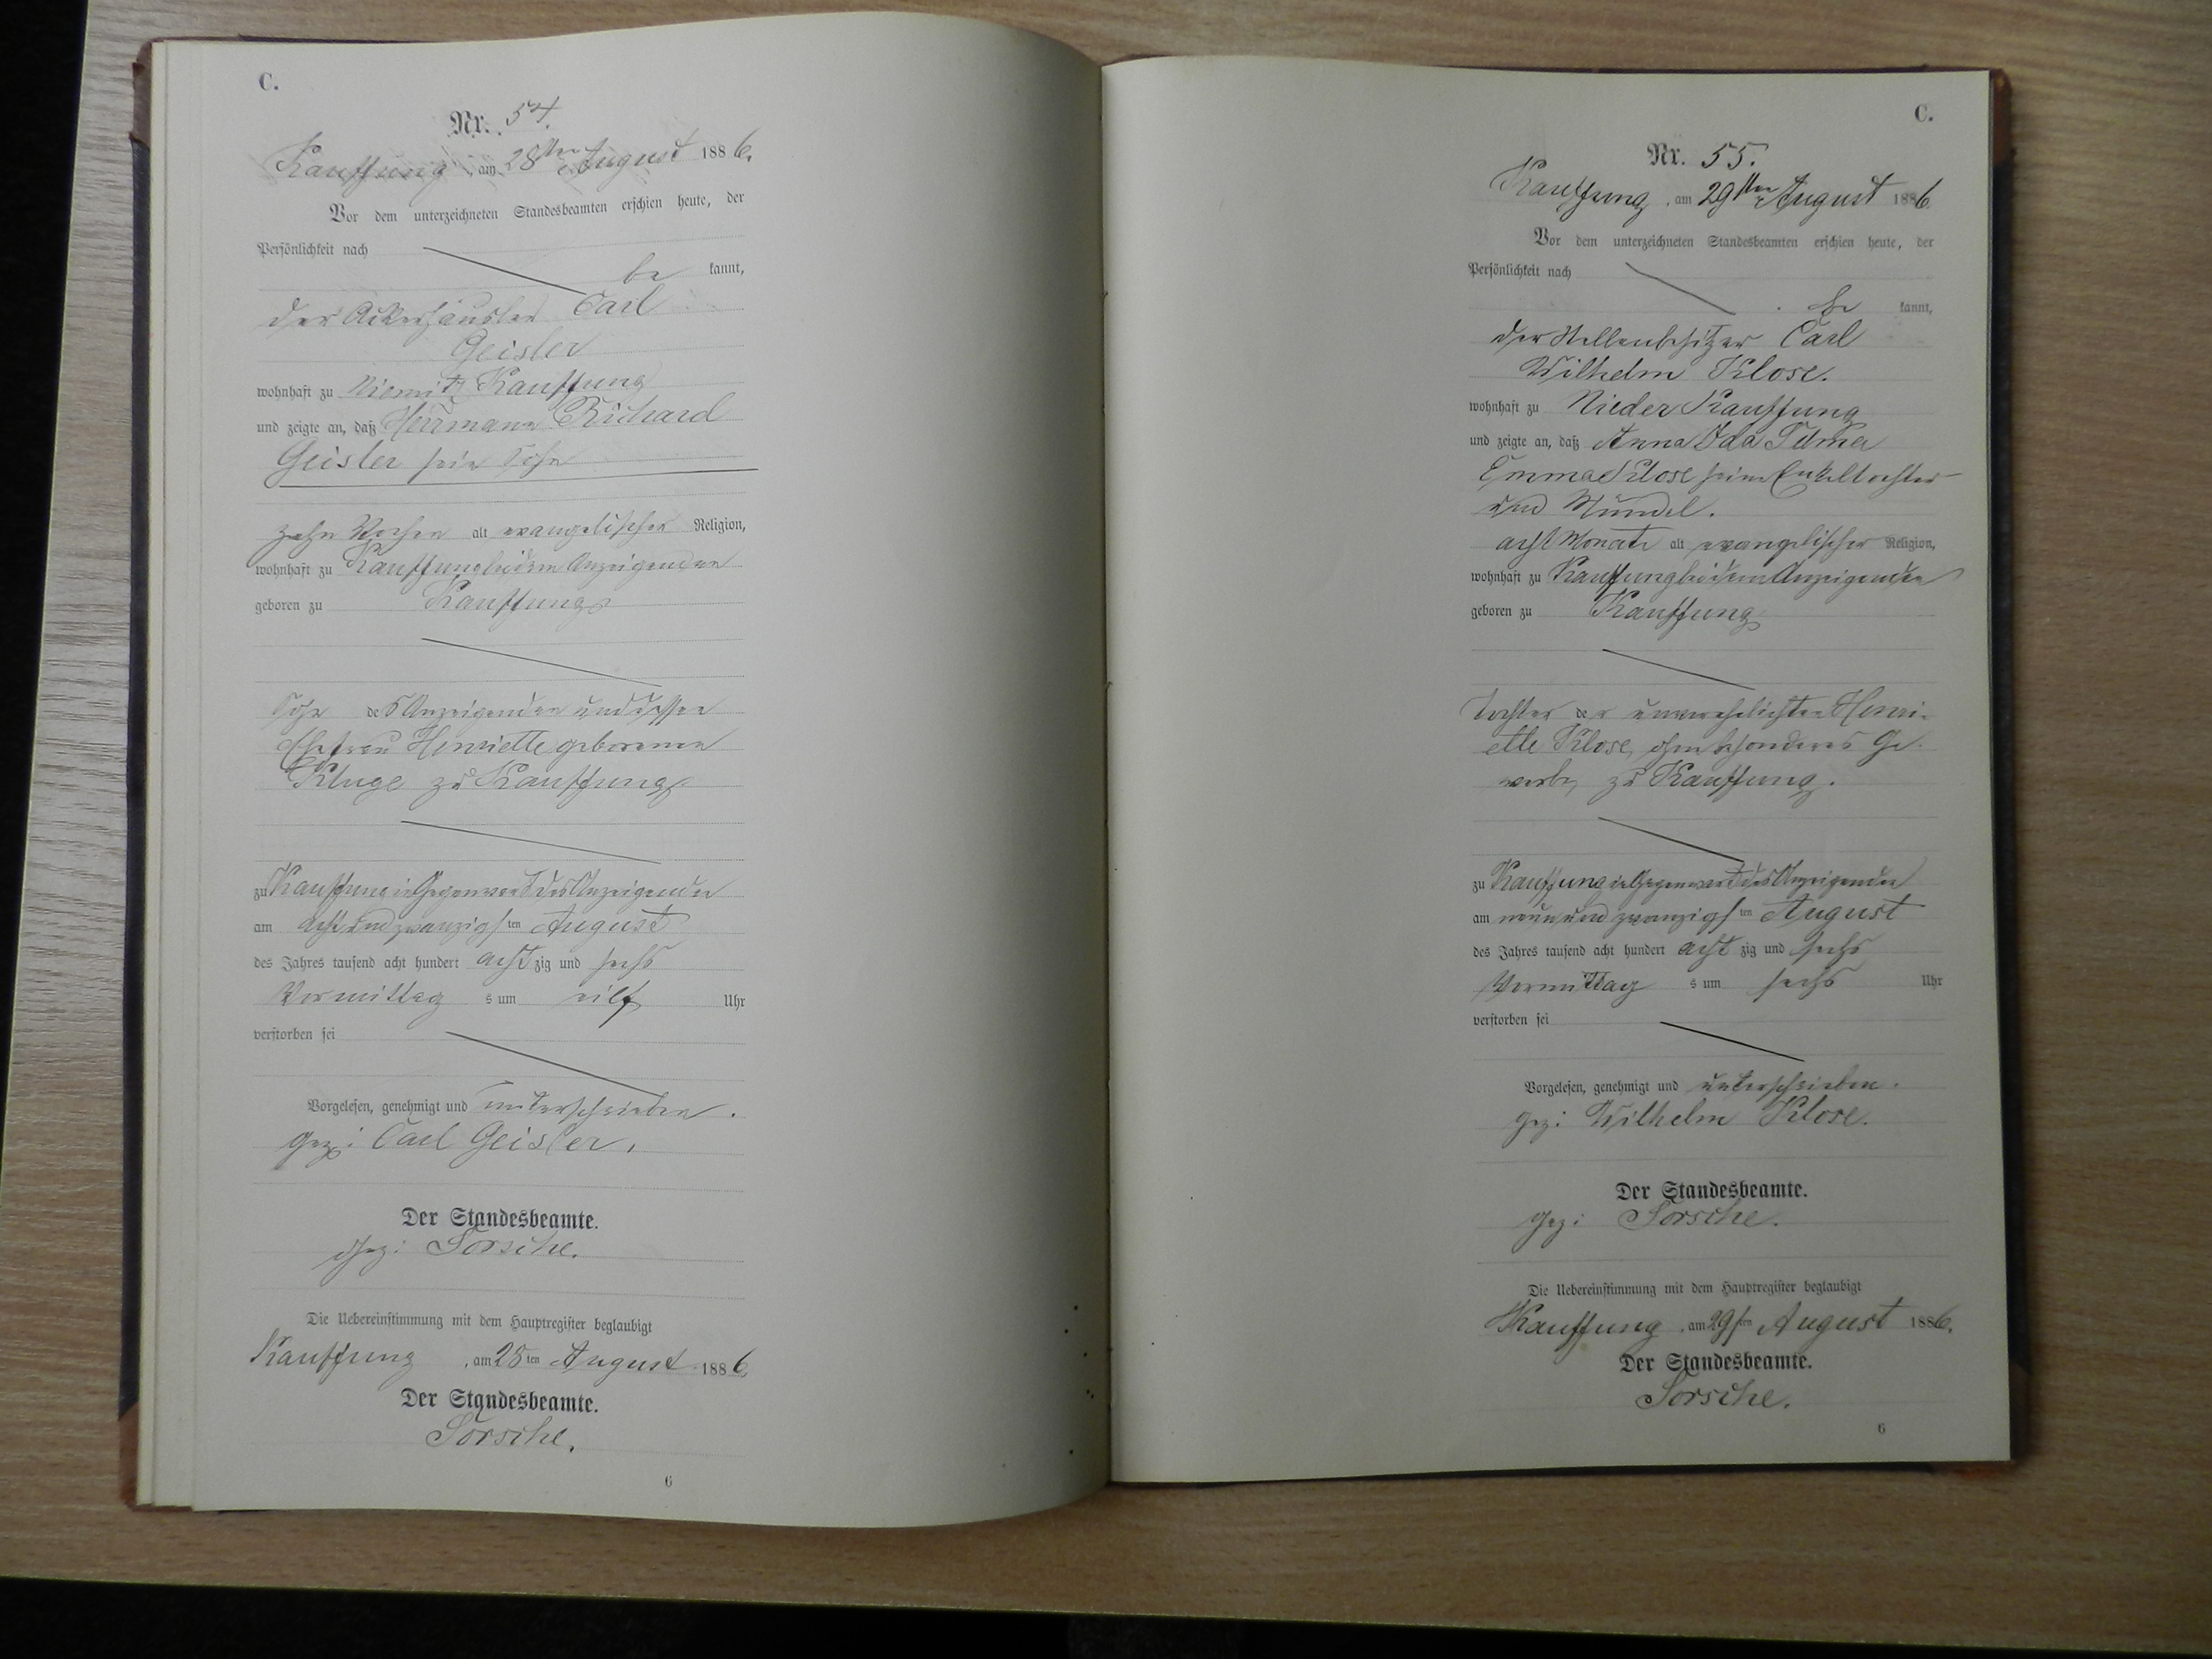 C.
Nr. 54.
Kauffung, am 28ten August 1886.
Vor dem unterzeichneten Standesbeamten erschien heute, der
Persönlichkeit nach
be kannt,
der Ackerhäusler Carl
Geisler
wohnhaft zu Niemitz Kauffung
und zeigte an, daß Herrmann Richard
Geisler sein Sohn
zehn Wochen alt evangelischer Religion,
wohnhaft zu Kauffung bei dem Anzeigenden
geboren zu Kauffung
Sohn des Anzeigenden und dessen
Ehefrau Henriette geborenen
Kluge zu Kauffung
zu Kauffung in Gegenwart des Anzeigenden
am acht und zwanzigsten August
des Jahres tausend acht hundert acht zig und sechs
Vormittag s um eilf Uhr
verstorben sei
Vorgelesen, genehmigt und unterschrieben.
gez: Carl Geisler.
Der Standesbeamte.
gez: Sorsche.
Die Uebereinstimmung mit dem Hauptregister beglaubigt
Kauffung, am 28ten August 1886.
Der Standesbeamte.
Sorsche.
6
C.
Nr. 55.
Kauffung, am 29ten August 1886.
Vor dem unterzeichneten Standesbeamten erschien heute, der
Persönlichkeit nach
be kannt,
der Stellenbesitzer Carl
Wilhelm Klose.
wohnhaft zu Nieder Kauffung
und zeigte an, daß Anna Ida
Emma Klose seine Enkeltochter
und Mündel.
acht Monate alt evangelischer Religion,
wohnhaft zu Kauffung bei dem Anzeigenden
geboren zu Kauffung
Tochter der unverehelichten Henri-
ette Klose, ohne besonderes Ge-
werbe, zu Kauffung.
zu Kauffung in Gegenwart des Anzeigenden
am neun und zwanzigsten August
des Jahres tausend acht hundert acht zig und sechs
Vormittag s um sechs Uhr
verstorben sei
Vorgelesen, genehmigt und unterschrieben.
gez: Wilhelm Klose.
Der Standesbeamte.
gez: Sorsche.
Die Uebereinstimmung mit dem Hauptregister beglaubigt
Kauffung, am 29sten August 1886.
Der Standesbeamte.
Sorsche.
6